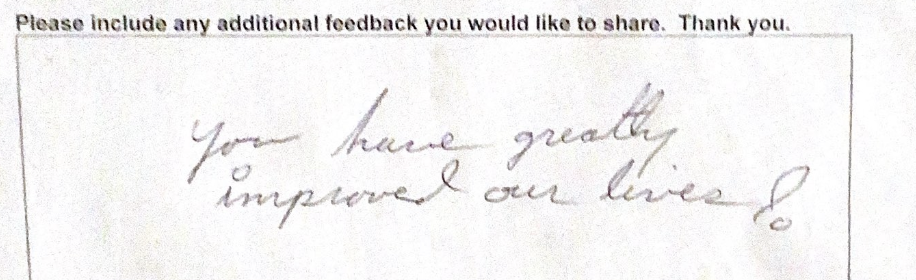 Please include any additional feedback you would like to share. Thank you.
You have greatly
improved our lives!